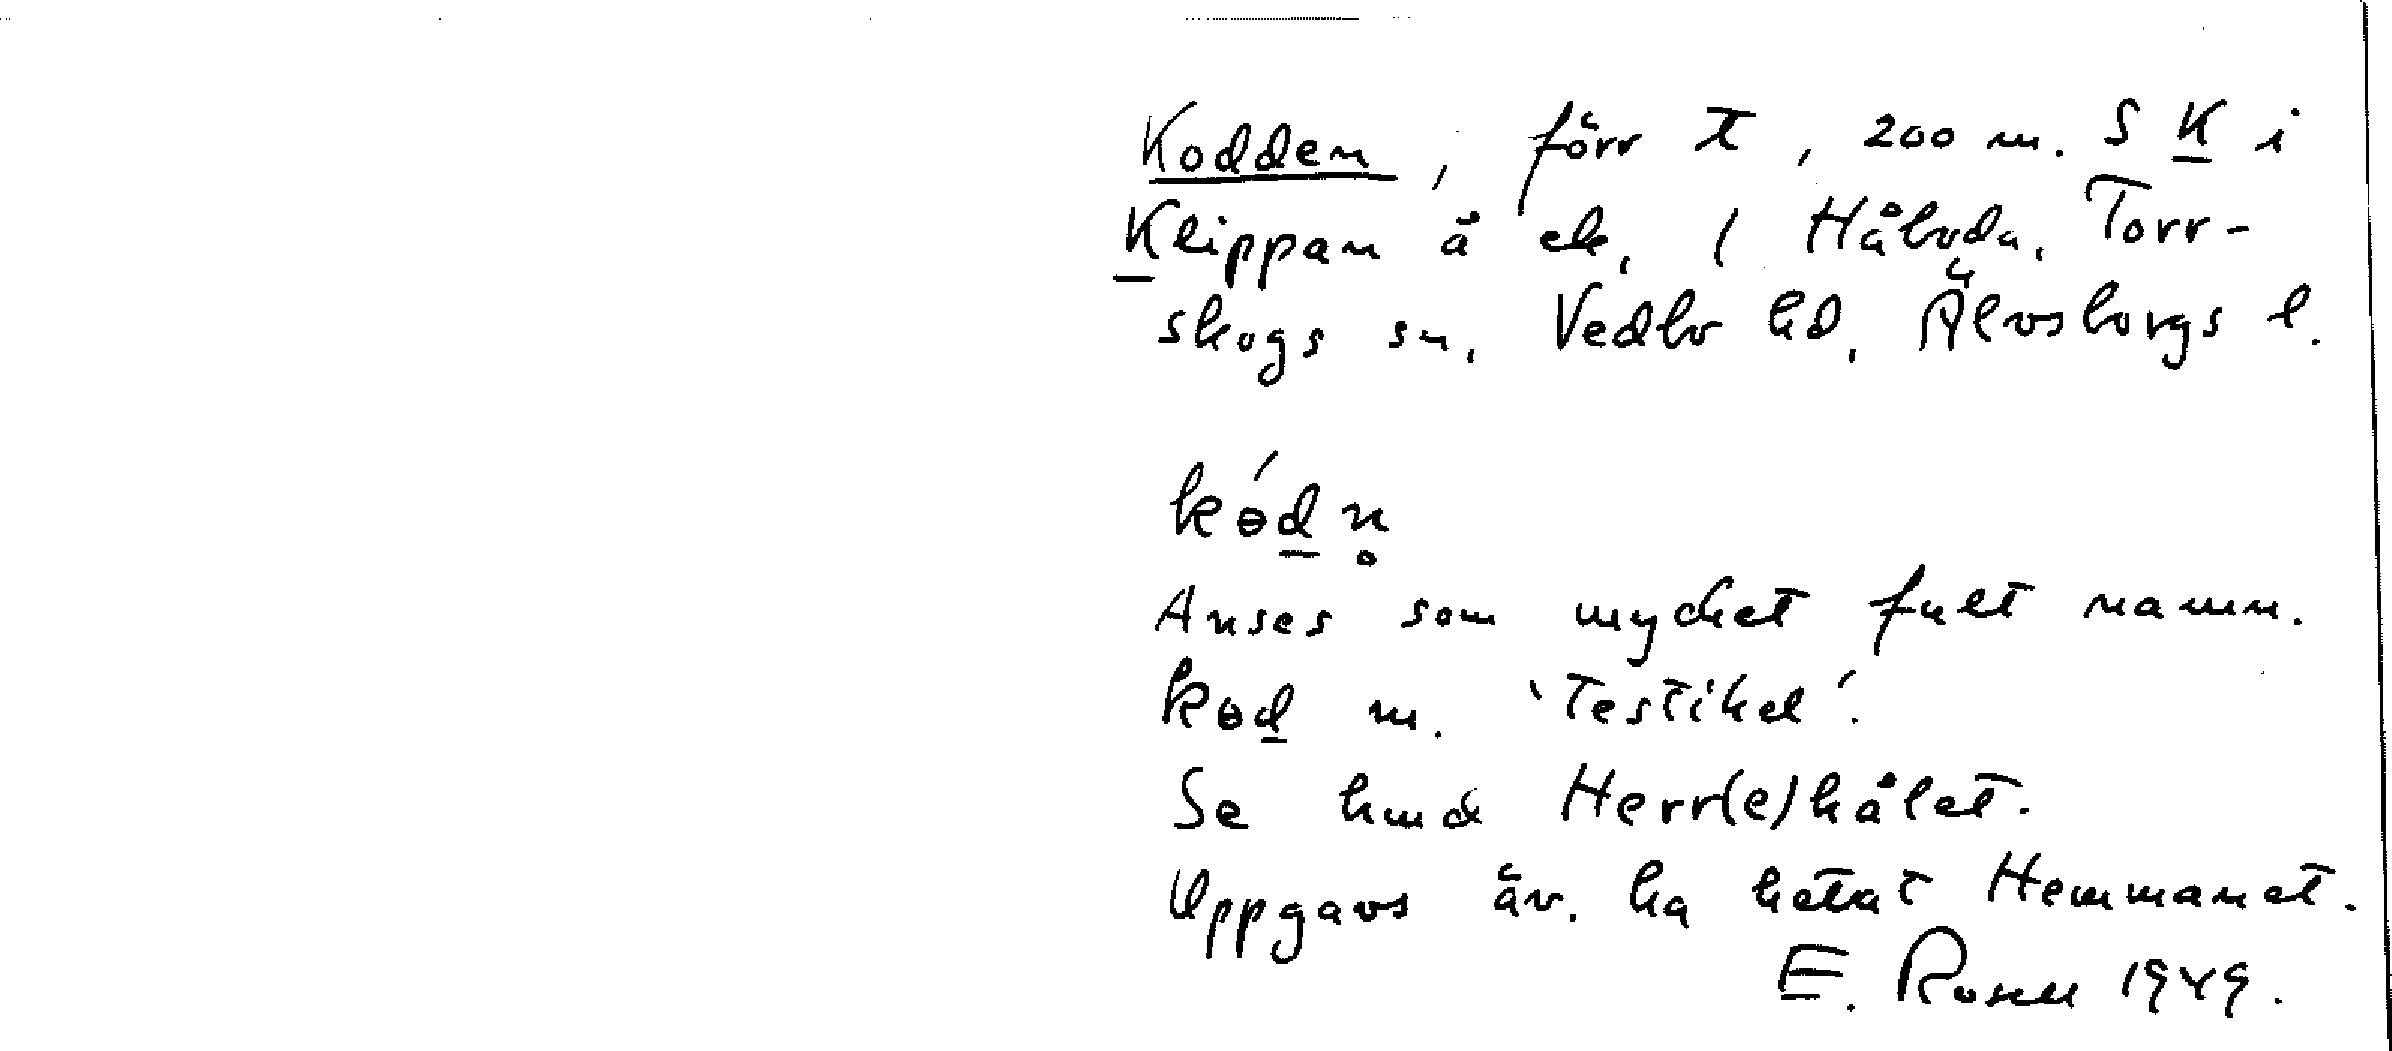 Kodden, förr t, 200 m. S K i
Klippan å ek, 1 Hålvda, Torr-
skogs sn, Vedbo hd, Älvsborgs l.
kɵ́dn̥
Anses som mycket fult namn.
kɵd m. 'testikel'.
Se hmd Herr(e)hålet.
Uppgavs äv. ha hetat Hemmanet.
E. Rosell 1949.